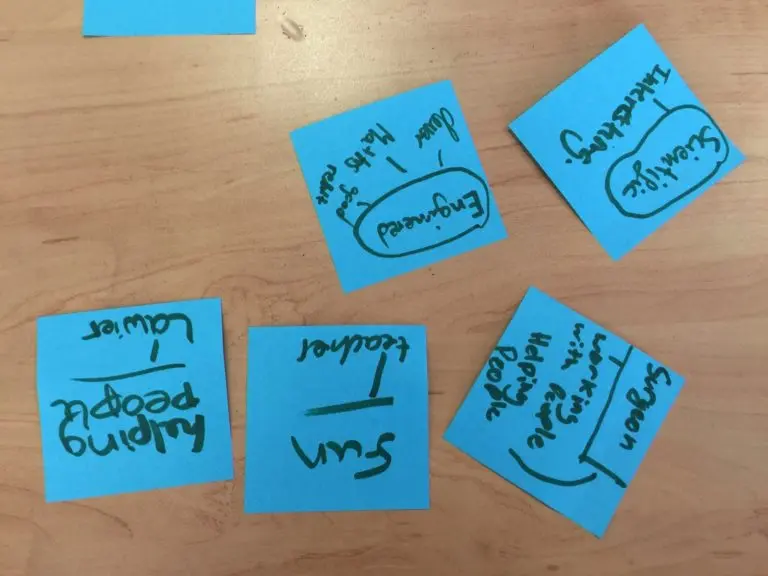 Scientific
Interesting.
Enginered
clever
Maths
good
Surgeon
working
with People
Helping
People
teacher
fun
Lawier
helping
people